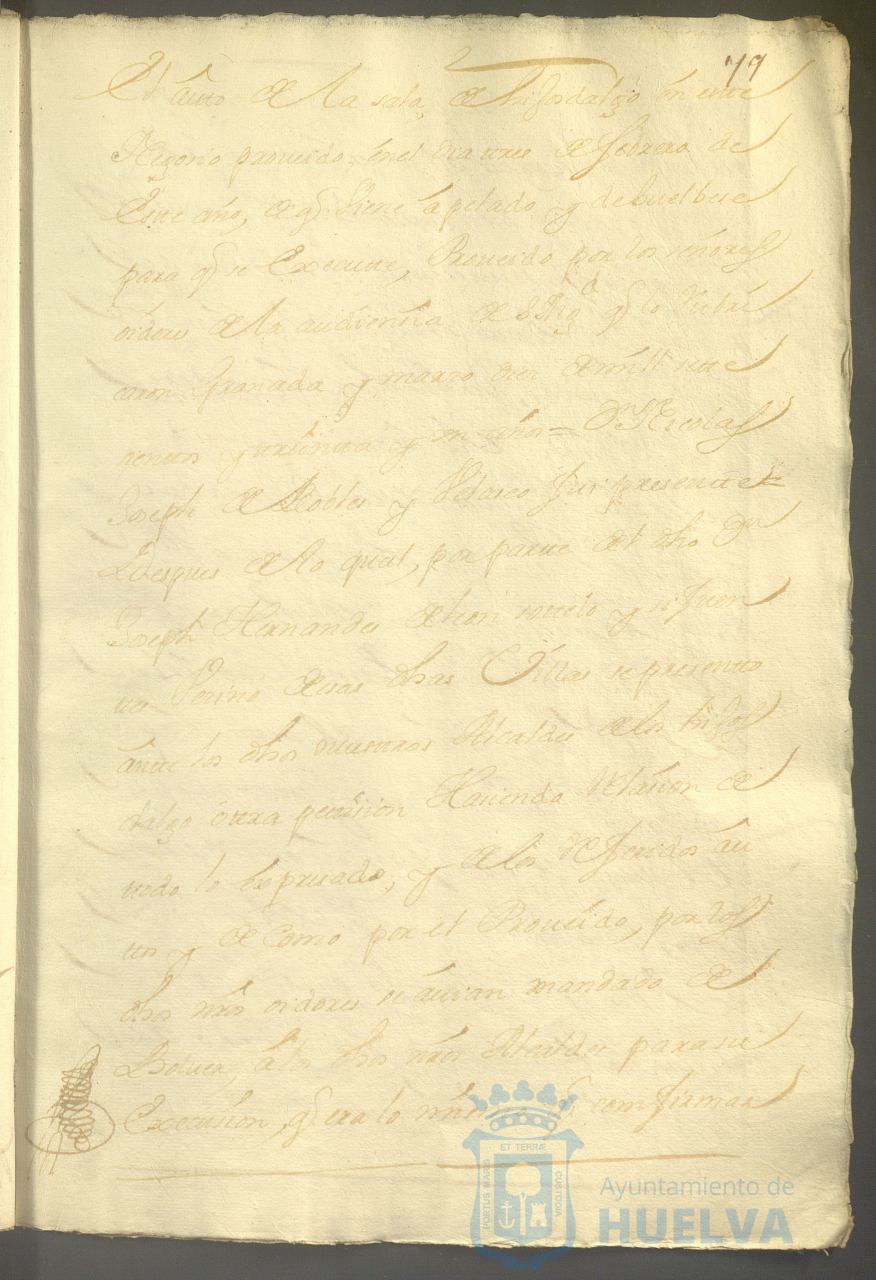 79
El auto de la sala de hijosdalgo en este
Negosio proueido en el dia tres de febrero de
Este año, de q. Viene apelado y debuelbese
para q. se Execute, Proueido por los señores
oidores de la audiensia de S Mgd q. lo
caron Granada y marzo dies de mill sete
sientos y treinta y un años = Dn Nicolas
Joseph de Robles y Velasco fui presente
Despues de lo qual, por parte del dho Dn
Joseph Hernandes de
Vesino de esas dhas Villas se presento
ante los dhos nuestros Alcaldes de los hijos
dalgo otra petision Hasiendo Relasion de
todo lo Expresado, y de los Referidos au
tos y de como por el Proueido, por los
dhos nros oidores se auian mandado de
Bolver, a los dhos nros Alcaldes para su
Execusion, q. era lo mismo confirmar
ET TERRÆ
PORTUS MARIS
CUSTODIA
Ayuntamiento de
HUELVA